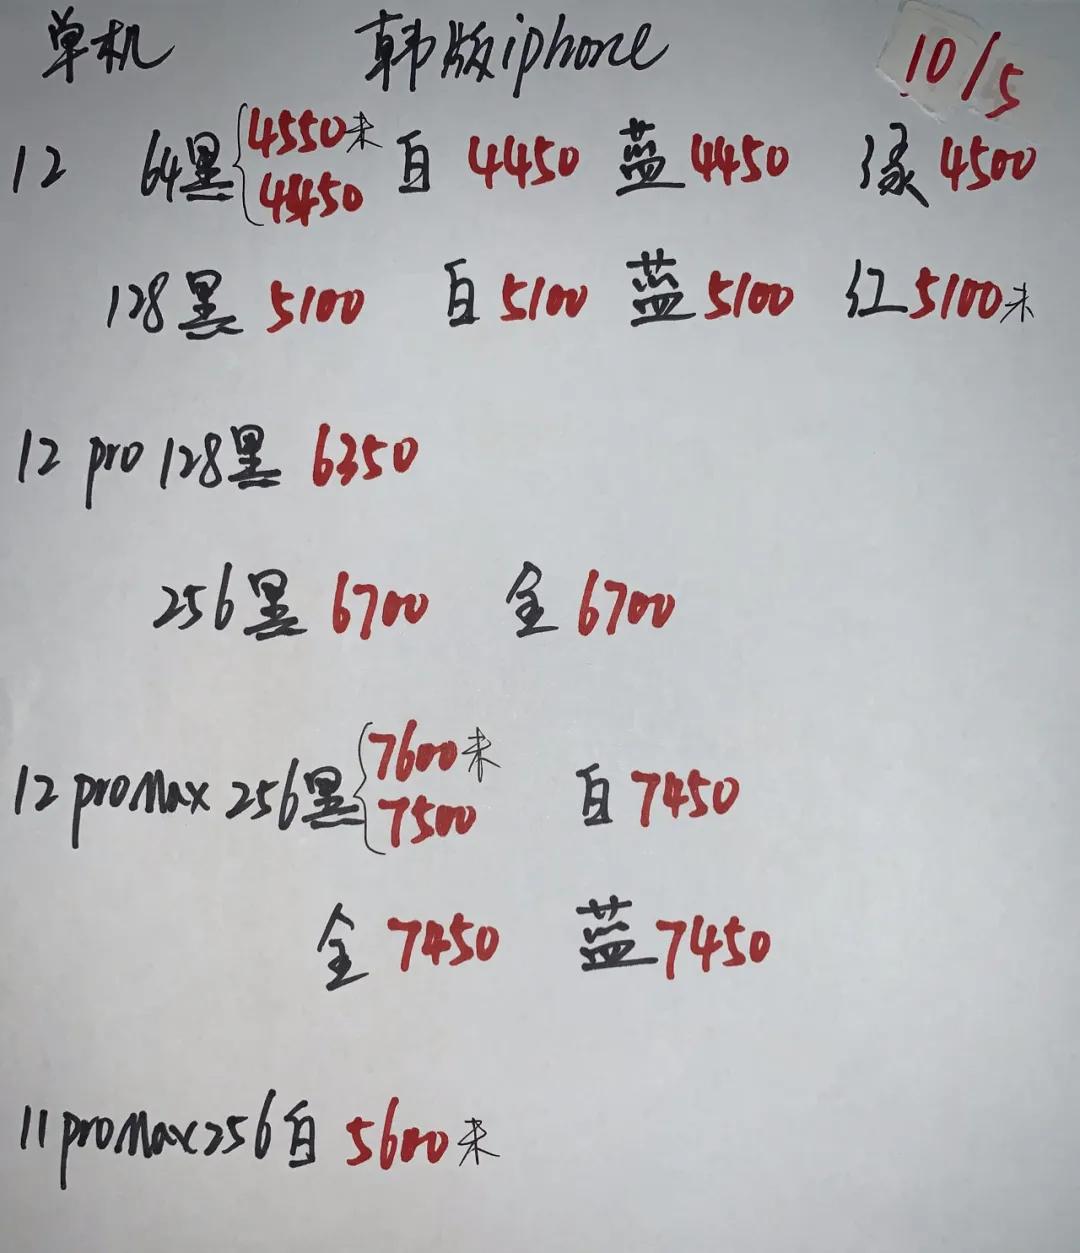 单机 韩版iphone 10/5
12 64黑{4550未 白 4450 蓝 4450 绿 4500
4450
128黑 5100 白 5100 蓝 5100 红 5100未
12 pro 128黑 6350
256黑 6700 金 6700
12 promax 256黑{7600未 白 7450
7500
金 7450 蓝 7450
11 promax 256白 5600未